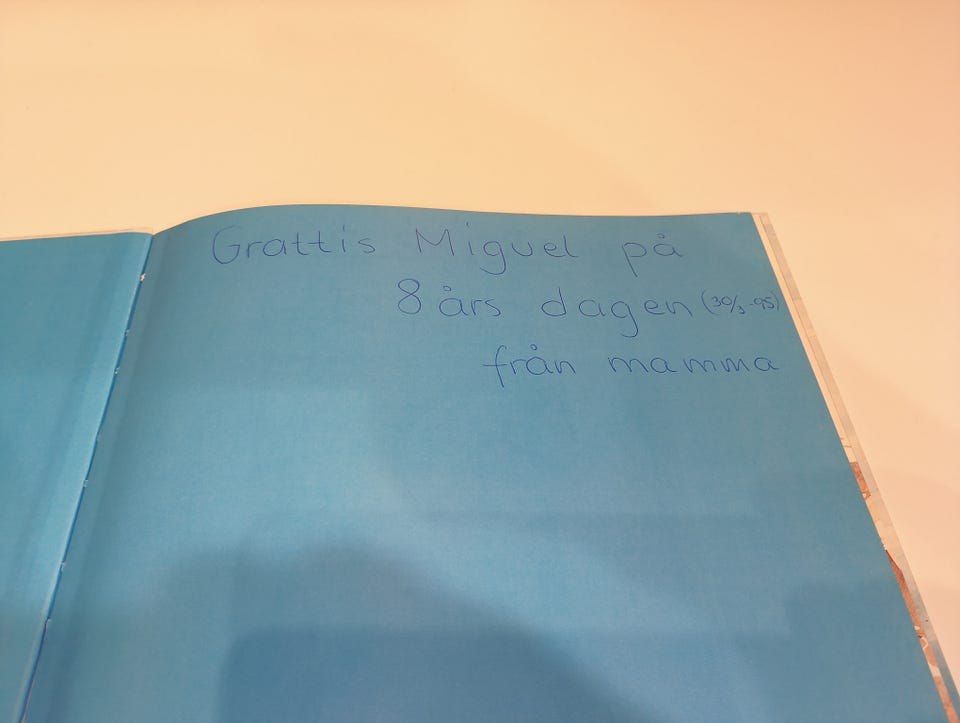 Grattis Miguel på
8 års dagen (30/3 -95)
från mamma